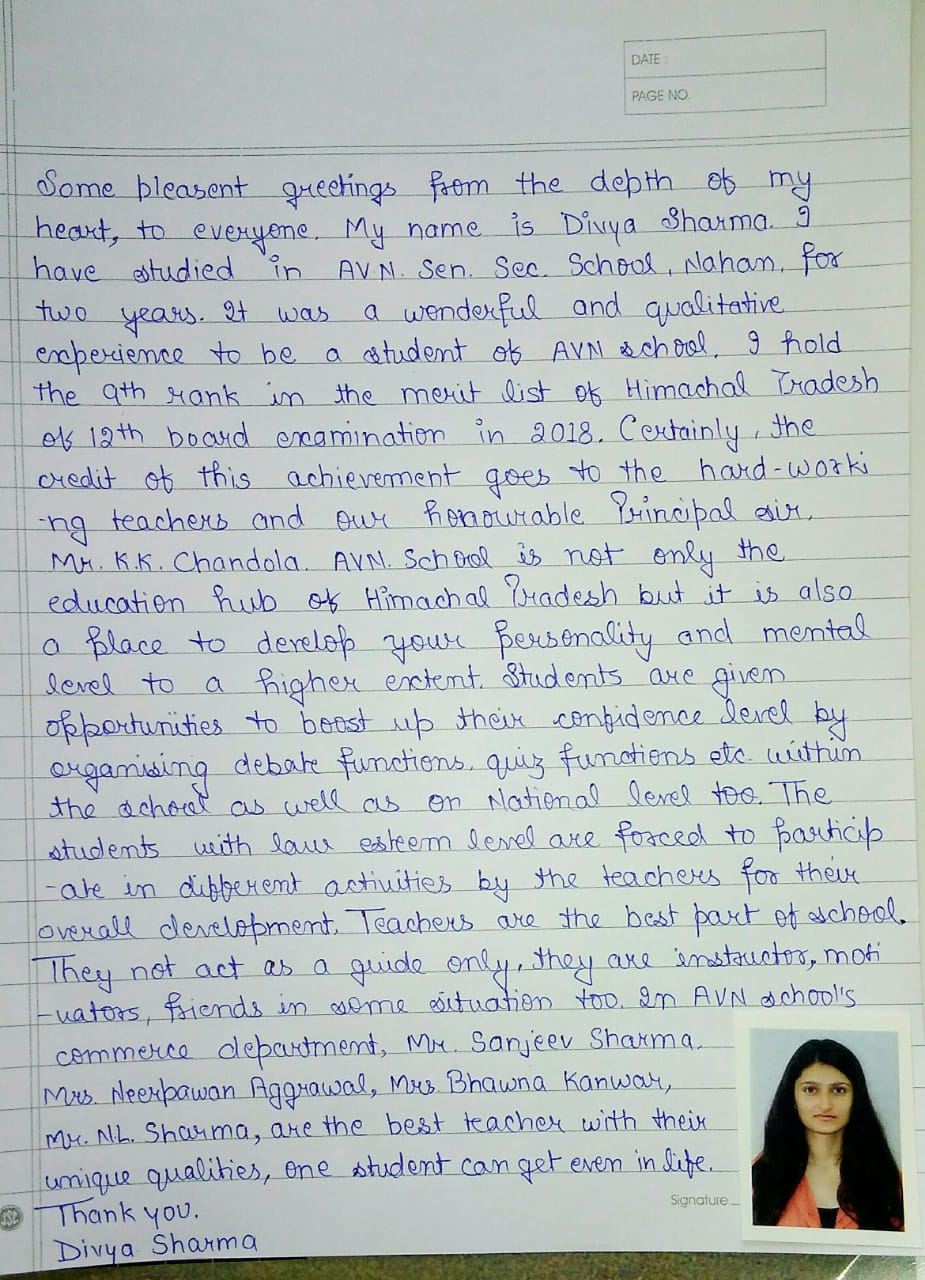 DATE :
PAGE NO.
Some pleasent greetings from the depth of my
heart, to everyone. My name is Divya Sharma. I
have studied in AV.N. Sen. Sec. School, Nahan, for
two years. It was a wonderful and qualitative
experience to be a student of AVN school. I hold
the 9th rank in the merit list of Himachal Pradesh
of 12th board examination in 2018. Certainly, the
credit of this achievement goes to the hard-worki
-ng teachers and our honourable Principal sir,
Mr. K.K. Chandola. AVN. School is not only the
education hub of Himachal Pradesh but it is also
a place to develop your personality and mental
level to a higher extent. Students are given
opportunities to boost up their confidence level by
organising debate functions, quiz functions etc. within
the school as well as on National level too. The
students with law esteem level are forced to particip
-ate in different activities by the teachers for their
overall development. Teachers are the best part of school.
They not act as a guide only, they are instructor, moti
-vators, friends in some situation too. In AVN school's
commerce department, Mr. Sanjeev Sharma,
Mrs. Neerpawan Aggrawal, Mrs. Bhawna Kanwar,
Mr. N.L. Sharma, are the best teacher with their
unique qualities, one student can get even in life.
Signature
Thank you.
Divya Sharma